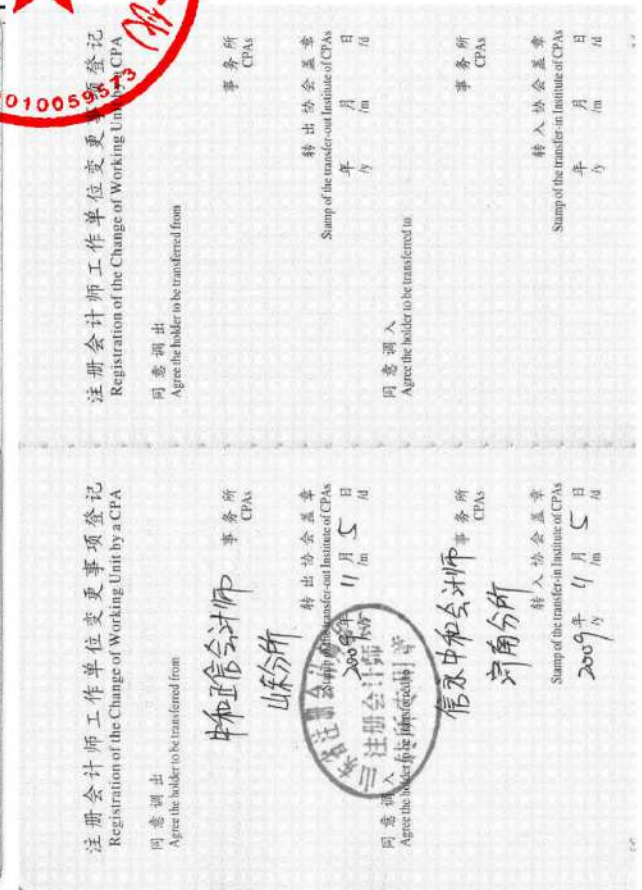 注册会计师工作单位变更事项登记
Registration of the Change of Working Unit by a CPA
同意调出
Agree the holder to be transferred from
中和正信会计师 事务所
CPAs
山东分所
转出协会盖章
Stamp of the transfer-out Institute of CPAs
2009年 11月 5日
/y /m /d
注册会计师
同意调入
Agree the holder to be transferred to
信永中和会计师 事务所
CPAs
济南分所
转入协会盖章
Stamp of the transfer-in Institute of CPAs
2009年 11月 5日
/y /m /d
注册会计师工作单位变更事项登记
Registration of the Change of Working Unit by a CPA
同意调出
Agree the holder to be transferred from
事务所
CPAs
转出协会盖章
Stamp of the transfer-out Institute of CPAs
年 月 日
/y /m /d
同意调入
Agree the holder to be transferred to
事务所
CPAs
转入协会盖章
Stamp of the transfer-in Institute of CPAs
年 月 日
/y /m /d
010059573